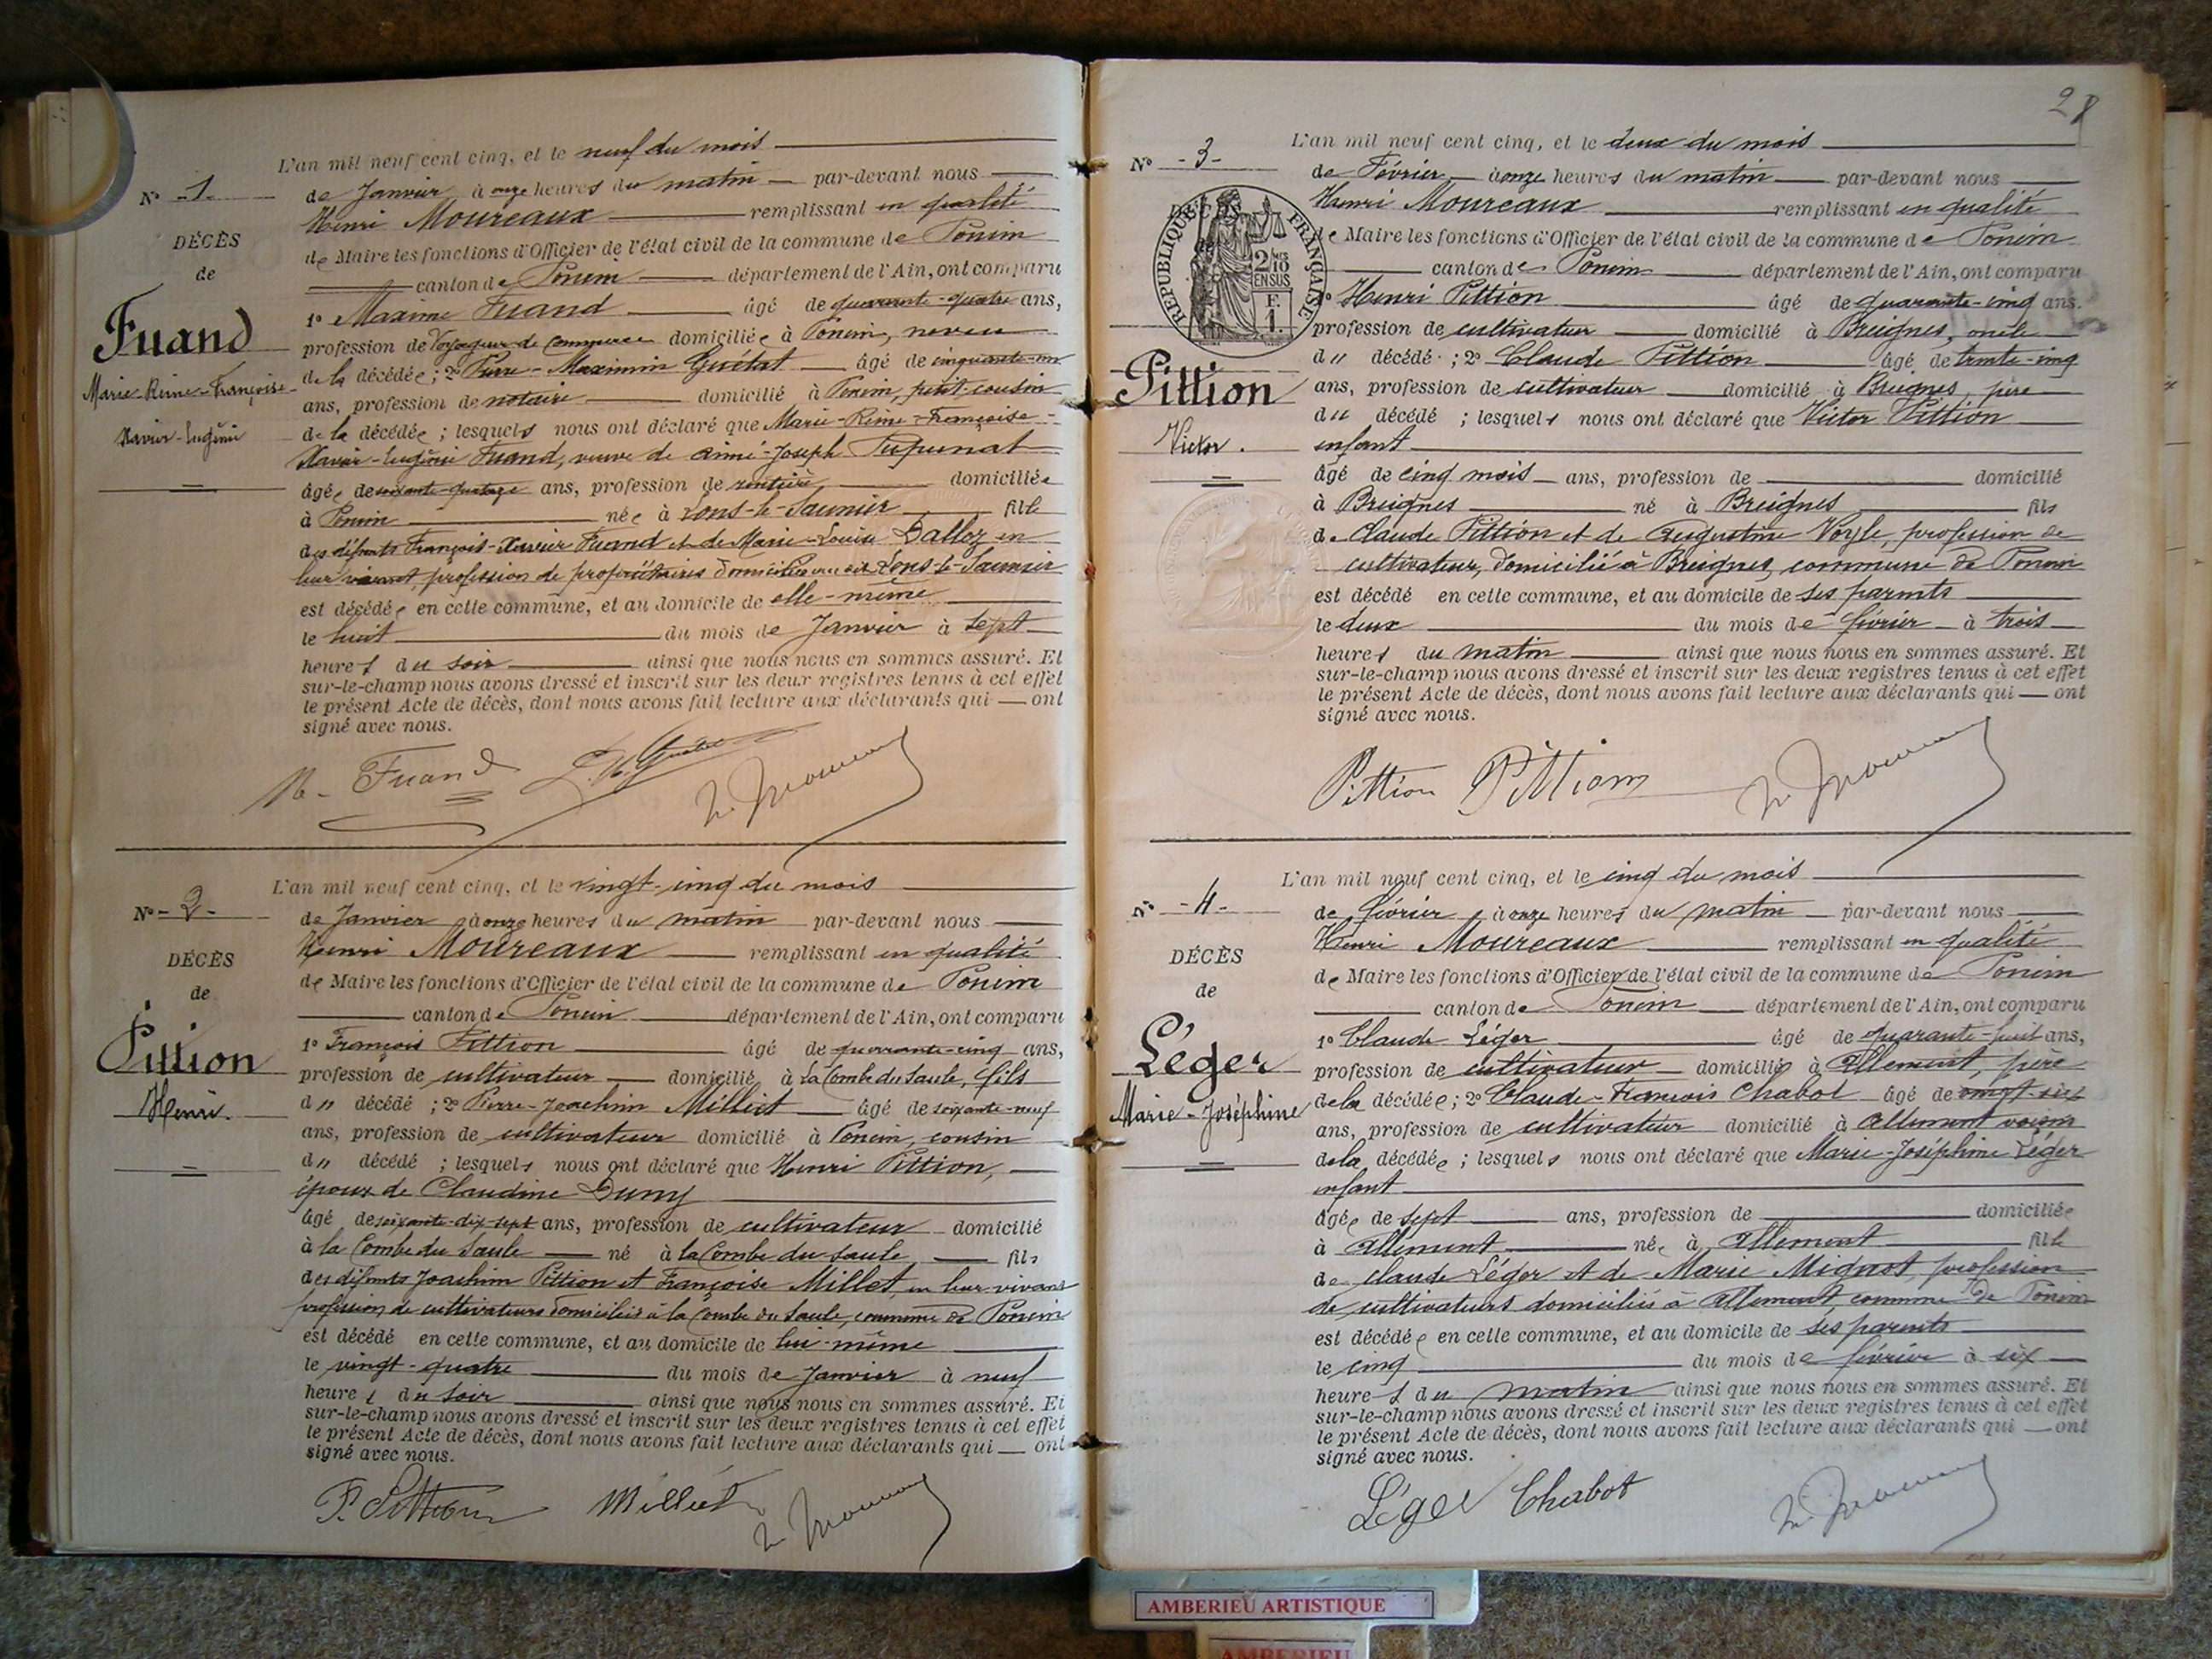 L'an mil neuf cent cinq, et le neuf du mois
N° -1-
de Janvier à onze heures du matin par-devant nous
Henri Moureaux remplissant en qualité
DÉCÈS
de Maire les fonctions d'Officier de l'état civil de la commune de Poncin
de
canton de Poncin département de l'Ain, ont comparu
Fuand
1° Maxime Fuand âgé de quarante-quatre ans,
profession de Voyageur de Commerce domicilié à Poncin, neveu
Marie-Reine-Françoise
de la décédée ; 2° Pierre-Maximin Guétat âgé de cinquante-un
ans, profession de notaire domicilié à Poncin, petit cousin
Xavier-Eugénie
de la décédée ; lesquels nous ont déclaré que Marie-Reine-Françoise-
Xavier-Eugénie Fuand, veuve de Aimé-Joseph
âgée de soixante-quatorze ans, profession de rentière domiciliée
à Poncin née à Lons-le-Saunier fille
des défunts François-Xavier Fuand et de Marie-Louise Dalloz en
leur vivant, profession de propriétaires domiciliés Lons-le-Saunier
est décédée en cette commune, et au domicile de elle-même
le huit du mois de Janvier à sept
heures du soir ainsi que nous nous en sommes assuré. Et
sur-le-champ nous avons dressé et inscrit sur les deux registres tenus à cet effet
le présent Acte de décès, dont nous avons fait lecture aux déclarants qui — ont
signé avec nous.
M. Fuand
L'an mil neuf cent cinq, et le vingt-cinq du mois
N° -2-
de Janvier à onze heures du matin par-devant nous
Henri Moureaux remplissant en qualité
DÉCÈS
de Maire les fonctions d'Officier de l'état civil de la commune de Poncin
de
canton de Poncin département de l'Ain, ont comparu
Pittion
1° François Pittion âgé de quarante-cinq ans,
profession de cultivateur domicilié à la Combe du Saule, fils
Henri.
du décédé ; 2° Pierre-Joachim Milliet âgé de soixante-neuf
ans, profession de cultivateur domicilié à Poncin, cousin
du décédé ; lesquels nous ont déclaré que Henri Pittion,
époux de Claudine Duny
âgé de soixante-dix-sept ans, profession de cultivateur domicilié
à la Combe du Saule né à la Combe du Saule fils
des défunts Joachim Pittion et Françoise Millet, en leur vivant
profession de cultivateurs domiciliés à la Combe du Saule, commune de Poncin
est décédé en cette commune, et au domicile de lui-même
le vingt-quatre du mois de Janvier à neuf
heures du soir ainsi que nous nous en sommes assuré. Et
sur-le-champ nous avons dressé et inscrit sur les deux registres tenus à cet effet
le présent Acte de décès, dont nous avons fait lecture aux déclarants qui — ont
signé avec nous.
F. Pittion Milliet
28
L'an mil neuf cent cinq, et le deux du mois
N° -3-
de Février à onze heures du matin par-devant nous
Henri Moureaux remplissant en qualité
RÉPUBLIQUE FRANÇAISE
2/10 EN SUS
F. 1.
de Maire les fonctions d'Officier de l'état civil de la commune de Poncin
canton de Poncin département de l'Ain, ont comparu
1° Henri Pittion âgé de quarante-cinq ans.
profession de cultivateur domicilié à Breignes, oncle
du décédé ; 2° Claude Pittion âgé de trente-cinq
Pittion
ans, profession de cultivateur domicilié à Breignes, père
du décédé ; lesquels nous ont déclaré que Victor Pittion
Victor.
enfant
âgé de cinq mois ans, profession de domicilié
à Breignes né à Breignes fils
de Claude Pittion et de Augustine Voyle, profession de
cultivateur, domicilié à Breignes, commune de Poncin
est décédé en cette commune, et au domicile de ses parents
le deux du mois de février à trois
heures du matin ainsi que nous nous en sommes assuré. Et
sur-le-champ nous avons dressé et inscrit sur les deux registres tenus à cet effet
le présent Acte de décès, dont nous avons fait lecture aux déclarants qui — ont
signé avec nous.
Pittion Pittion
L'an mil neuf cent cinq, et le cinq du mois
N° -4-
de février à onze heures du matin par-devant nous
Henri Moureaux remplissant en qualité
DÉCÈS
de Maire les fonctions d'Officier de l'état civil de la commune de Poncin
de
canton de Poncin département de l'Ain, ont comparu
Léger
1° Claude Léger âgé de quarante-huit ans,
profession de cultivateur domicilié à Allement, père
Marie-Joséphine
de la décédée ; 2° Claude-François Chabot âgé de vingt-six
ans, profession de cultivateur domicilié à Allement voisin
de la décédée ; lesquels nous ont déclaré que Marie-Joséphine Léger
enfant
âgée de sept ans, profession de domiciliée
à Allement née à Allement fille
de Claude Léger et de Marie Mignot, profession
de cultivateurs domiciliés à Allement, commune de Poncin
est décédée en cette commune, et au domicile de ses parents
le cinq du mois de février à six
heures du matin ainsi que nous nous en sommes assuré. Et
sur-le-champ nous avons dressé et inscrit sur les deux registres tenus à cet effet
le présent Acte de décès, dont nous avons fait lecture aux déclarants qui — ont
signé avec nous.
Léger Chabot
AMBERIEU ARTISTIQUE
AMBERIEU